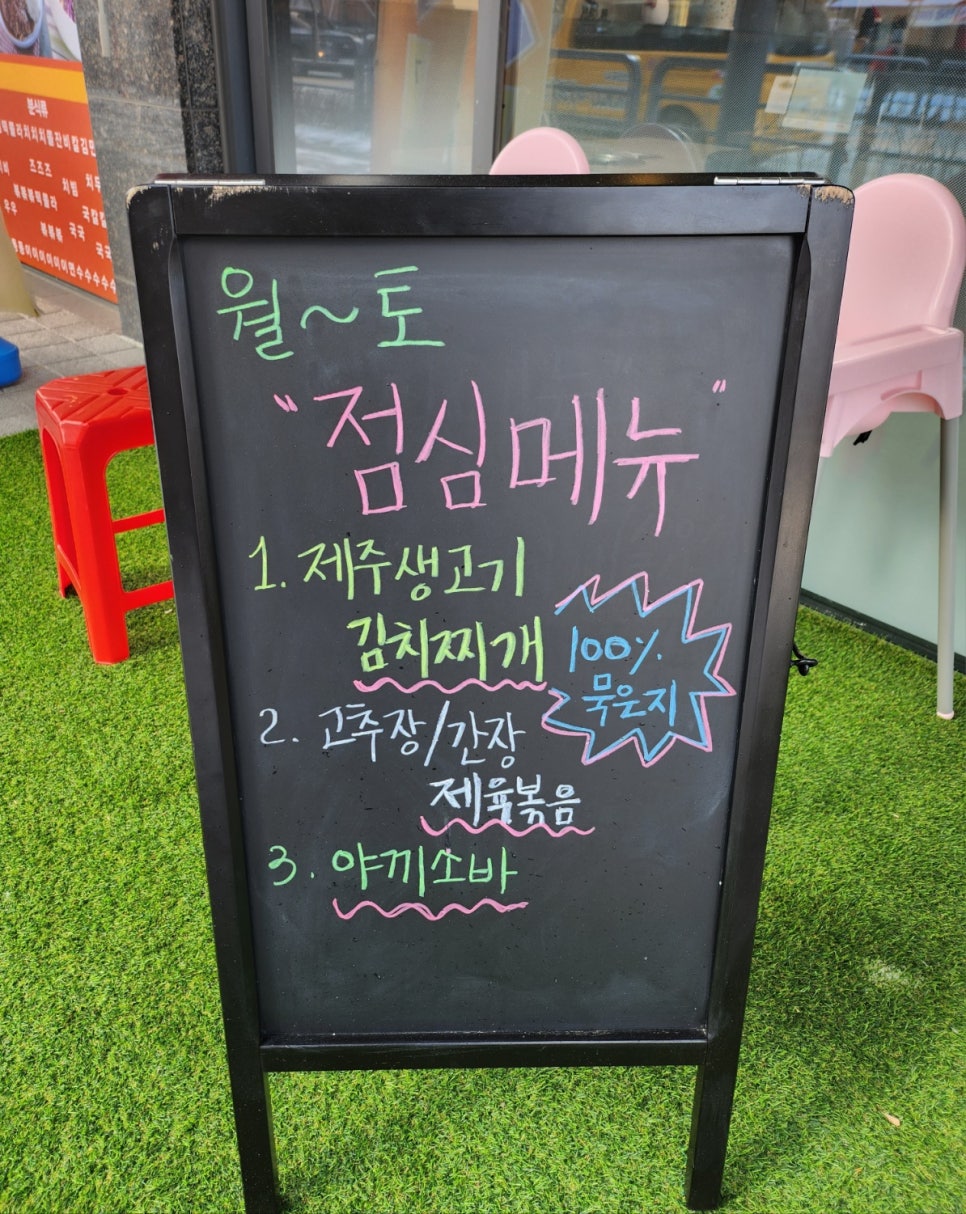 월~토
"점심메뉴"
1. 제주생고기
김치찌개
100%
묵은지
2. 고추장/간장
제육볶음
3. 야끼소바
분식류